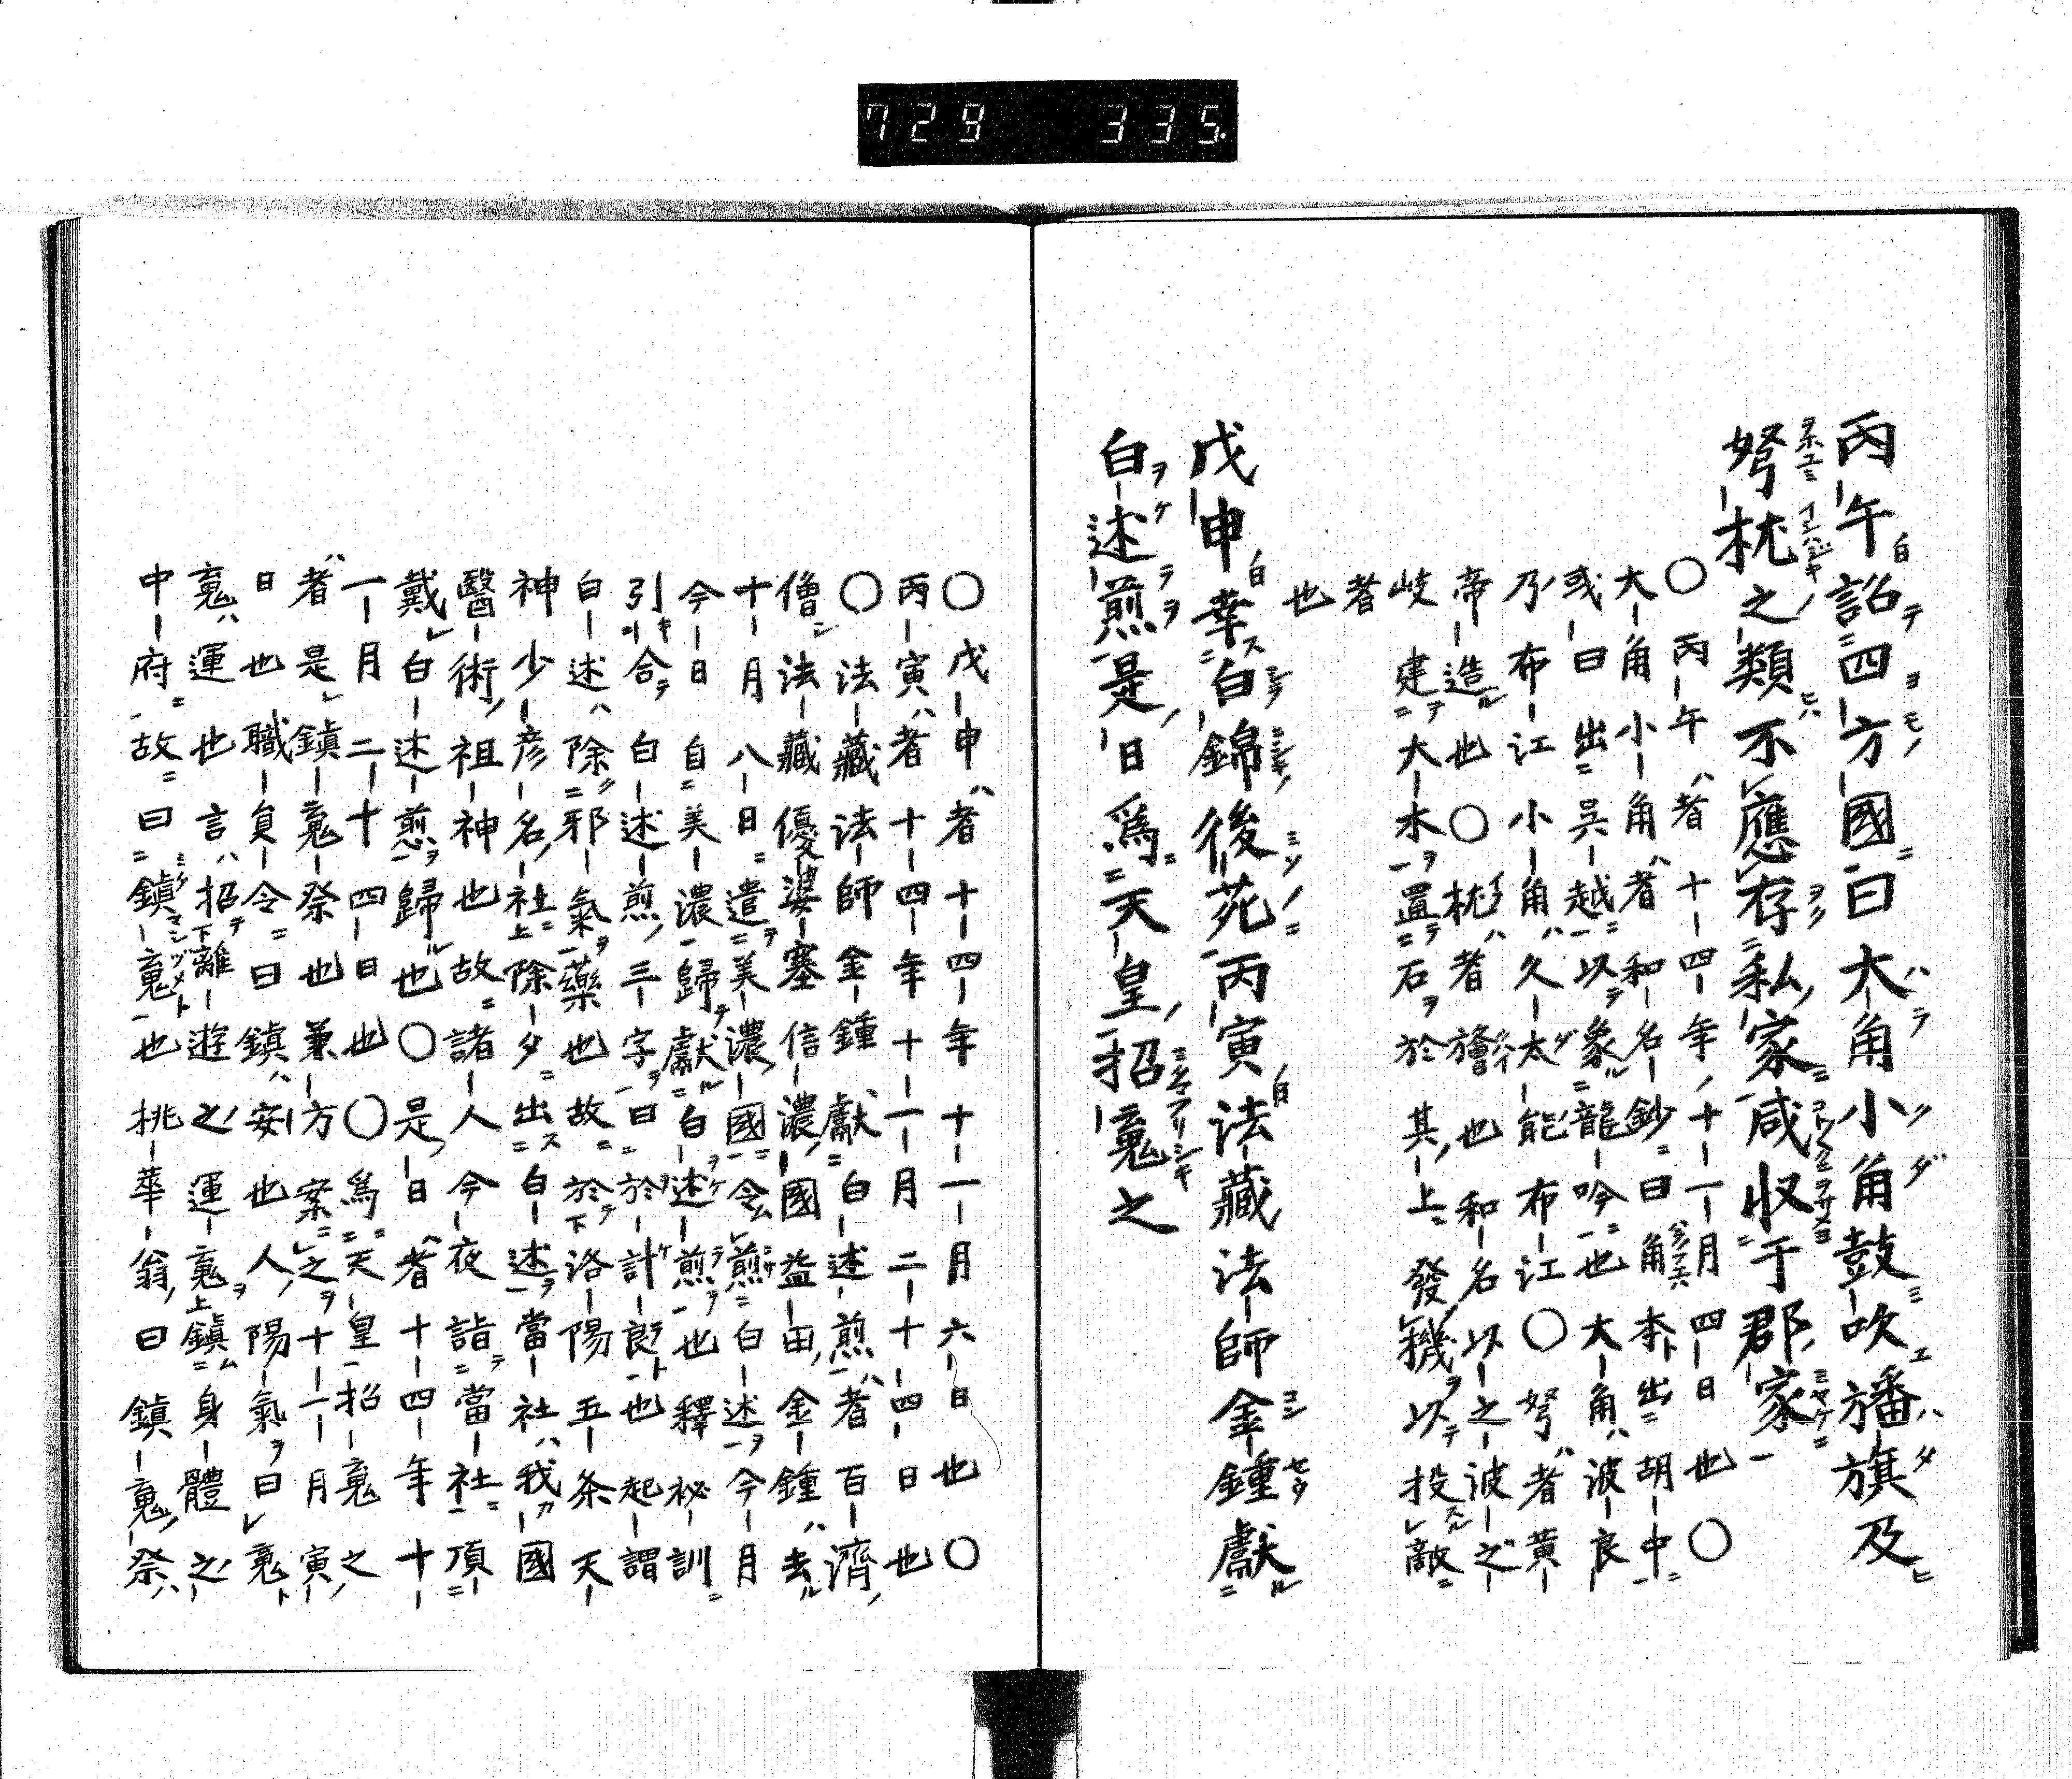 729 335
丙午詔四方國曰大角小角鼓吹旛旗及
弩抛之類不應存私家咸收于郡家
〇丙午者十四年十一月四日也〇
大角小角者和名鈔曰角本出胡中
或曰出吳越以象龍吟也大角波良
乃布江小角久太能布江〇弩者黄
帝造也〇抛者旝也和名以之波之
岐建大木置石於其上發機以投敵
者
也
戊申幸白錦後苑丙寅法藏法師金鍾獻
白朮煎是日爲天皇招䰟之
〇戊申者十四年十一月六日也〇
丙寅者十四年十一月二十四日也
〇法藏法師金鍾獻白朮煎者百濟
僧法藏優婆塞信濃國益田金鍾去
十月八日遣美濃國令煎白朮今月
今日自美濃歸獻白朮煎也釋秘訓
引合白朮煎三字曰於計良也起謂
白朮除邪氣藥也故於洛陽五条天
神少彦名社除夕出白朮當社我國
醫術祖神也故諸人今夜詣當社頂
戴白朮煎歸也〇是日者十四年十
一月二十四日也〇爲天皇招䰟之
者是鎮䰟祭也兼方案之十一月寅
日也職員令曰鎮安也人陽氣曰䰟
䰟運也言招離遊之運䰟鎮身體之
中府故曰鎮䰟也桃華翁曰鎮䰟祭